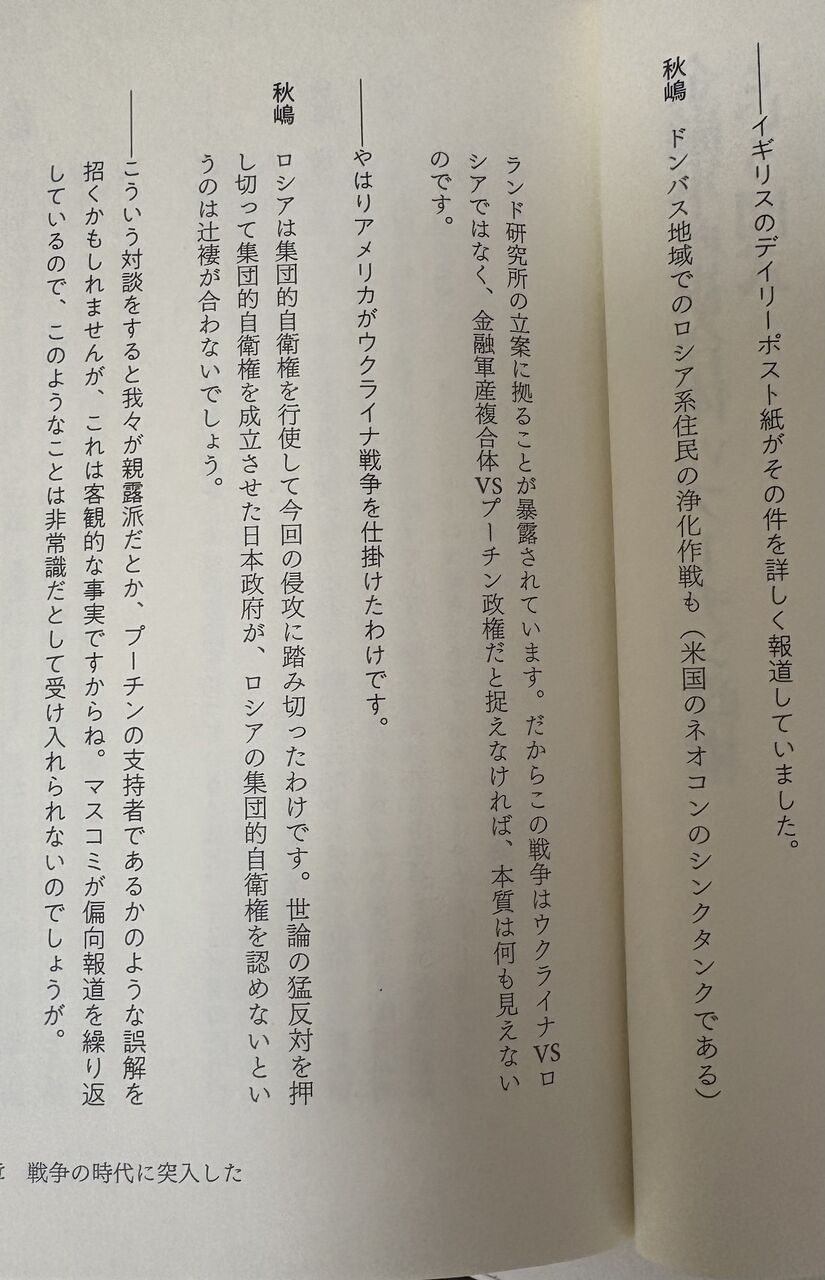 ――イギリスのデイリーポスト紙がその件を詳しく報道していました。
秋嶋　ドンバス地域でのロシア系住民の浄化作戦も（米国のネオコンのシンクタンクである）
ランド研究所の立案に拠ることが暴露されています。だからこの戦争はウクライナVSロ
シアではなく、金融軍産複合体VSプーチン政権だと捉えなければ、本質は何も見えない
のです。
――やはりアメリカがウクライナ戦争を仕掛けたわけです。
秋嶋　ロシアは集団的自衛権を行使して今回の侵攻に踏み切ったわけです。世論の猛反対を押
し切って集団的自衛権を成立させた日本政府が、ロシアの集団的自衛権を認めないとい
うのは辻褄が合わないでしょう。
――こういう対談をすると我々が親露派だとか、プーチンの支持者であるかのような誤解を
招くかもしれませんが、これは客観的な事実ですからね。マスコミが偏向報道を繰り返
しているので、このようなことは非常識だとして受け入れられないのでしょうが。
戦争の時代に突入した